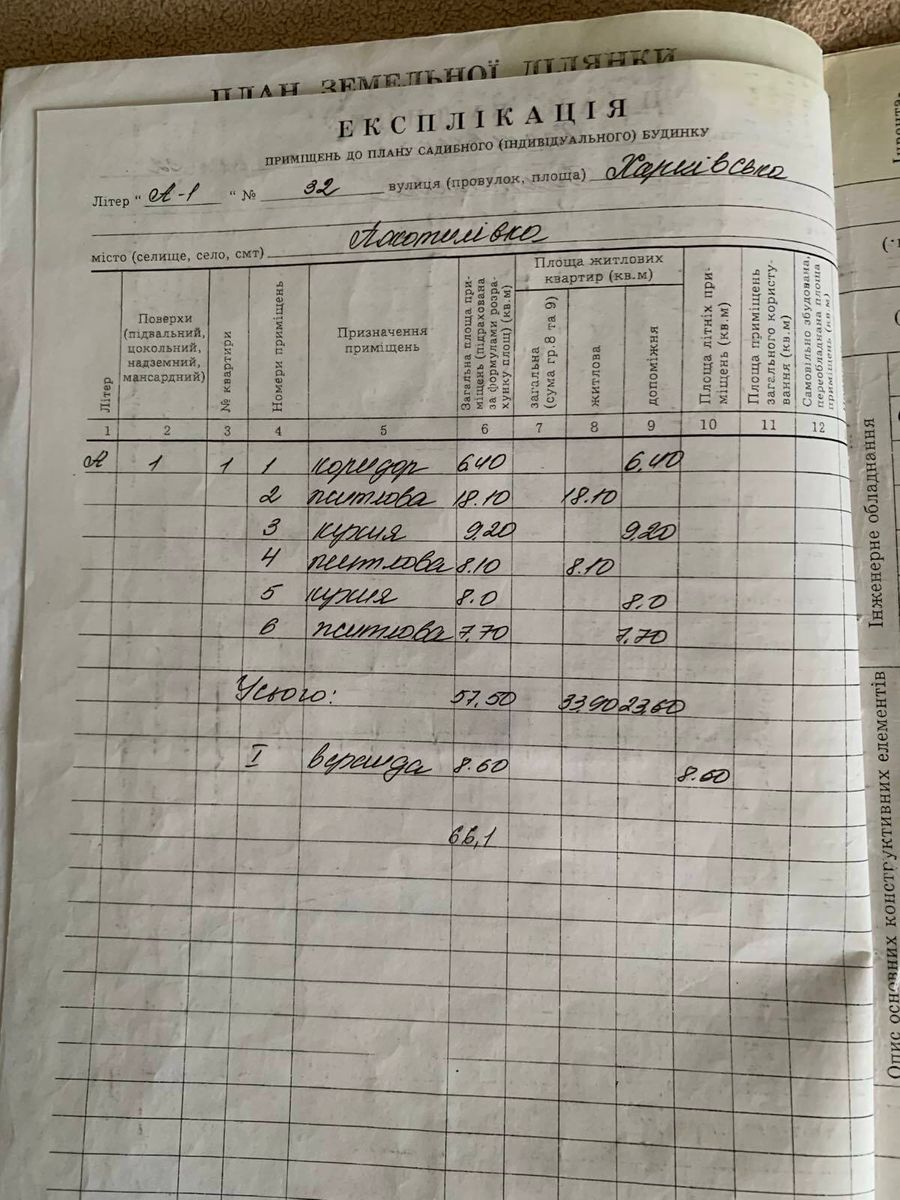 ПЛАН ЗЕМЕЛЬНОЇ ДІЛЯНКИ
ЕКСПЛІКАЦІЯ
ПРИМІЩЕНЬ ДО ПЛАНУ САДИБНОГО (ІНДИВІДУАЛЬНОГО) БУДИНКУ
Літер " А-1 " № 32 вулиця (провулок, площа) Харківська
місто (селище, село, смт)
Літер
Поверхи (підвальний, цокольний, надземний, мансардний)
№ квартири
Номери приміщень
Призначення приміщень
Загальна площа приміщень (підрахована за формулами розрахунку площ) (кв.м)
Площа житлових квартир (кв.м)
загальна (сума гр.8 та 9)
житлова
допоміжня
Площа літніх приміщень (кв.м)
Площа приміщень загального користування (кв.м)
Самовільно збудована, переобладнана площа приміщень (кв.м)
1 2 3 4 5 6 7 8 9 10 11 12
А 1 1 1 коридор 6.40 6.40
2 житлова 18.10 18.10
3 кухня 9.20 9.20
4 житлова 8.10 8.10
5 кухня 8.0 8.0
6 житлова 7.70 7.70
Усього: 57.50 33.90 23.60
I веранда 8.60 8.60
66,1
Інженерне обладнання
Опис основних конструктивних елементів